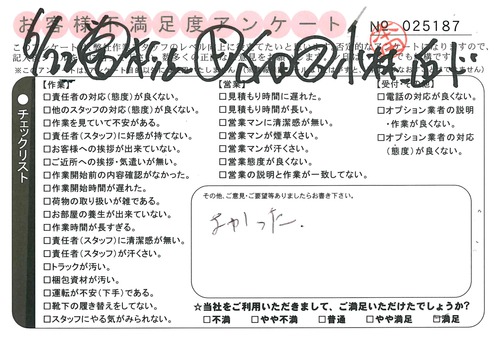 お客様満足度アンケート
No 025187
チェックリスト
【作業】
□責任者の対応(態度)が良くない。
□他のスタッフの対応(態度)が良くない。
□作業を見ていて不安がある。
□責任者(スタッフ)に好感が持てない。
□お客様への挨拶が出来ていない。
□ご近所への挨拶・気遣いが無い。
□作業開始前の内容確認がなかった。
□作業開始時間が遅れた。
□荷物の取り扱いが雑である。
□お部屋の養生が出来ていない。
□作業時間が長すぎる。
□責任者(スタッフ)に清潔感が無い。
□責任者(スタッフ)が汗さい。
□トラックが汚い。
□梱包資材が汚い。
□運転が不安(下手)である。
□靴下の履き替えをしてない。
□スタッフにやる気がみられない。
【営業】
□見積もり時間に遅れた。
□見積もり時間が長い。
□営業マンに清潔感が無い。
□営業マンが煙草くさい。
□営業マンが汗さい。
□営業態度が良くない。
□営業の説明と作業が一致してない。
□電話の対応が良くない。
□オプション業者の説明
・作業が良くない。
□オプション業者の対応
(態度)が良くない。
その他、ご意見・ご要望等ありましたらお書き下さい。
よかった.
☆当社をご利用いただきまして、ご満足いただけたでしょうか?
□不満 □やや不満 □普通 □やや満足 ☑満足